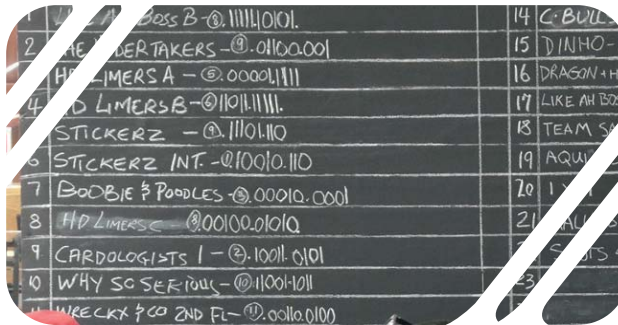 BOSS B-⑧.11111.0101.
2 THE UNDERTAKERS - ⑨.01100.001
HD LIMERS A - ⑤.00001.1111
4 HD LIMERS B-⑥11011.11111.
STICKERZ - ⑨.11101.110
6 STICKERZ INT.-⑨.10010.110
7 BOOBIE & POODLES-③.00010.0001
8 HD LIMERS C - ⑧.00100.01010
9 CARDOLOGISTS 1 - ②.10011.0101
10 WHY SO SERIOUS - ⑩.11001.1011
WRECKX & CO 2ND FL- ⑪.00110.0100
14 C.BULLS
15 DINHO-
16 DRAGON+H
17 LIKE AH BOS
18 TEAM SA
19 AQU
20 1
21